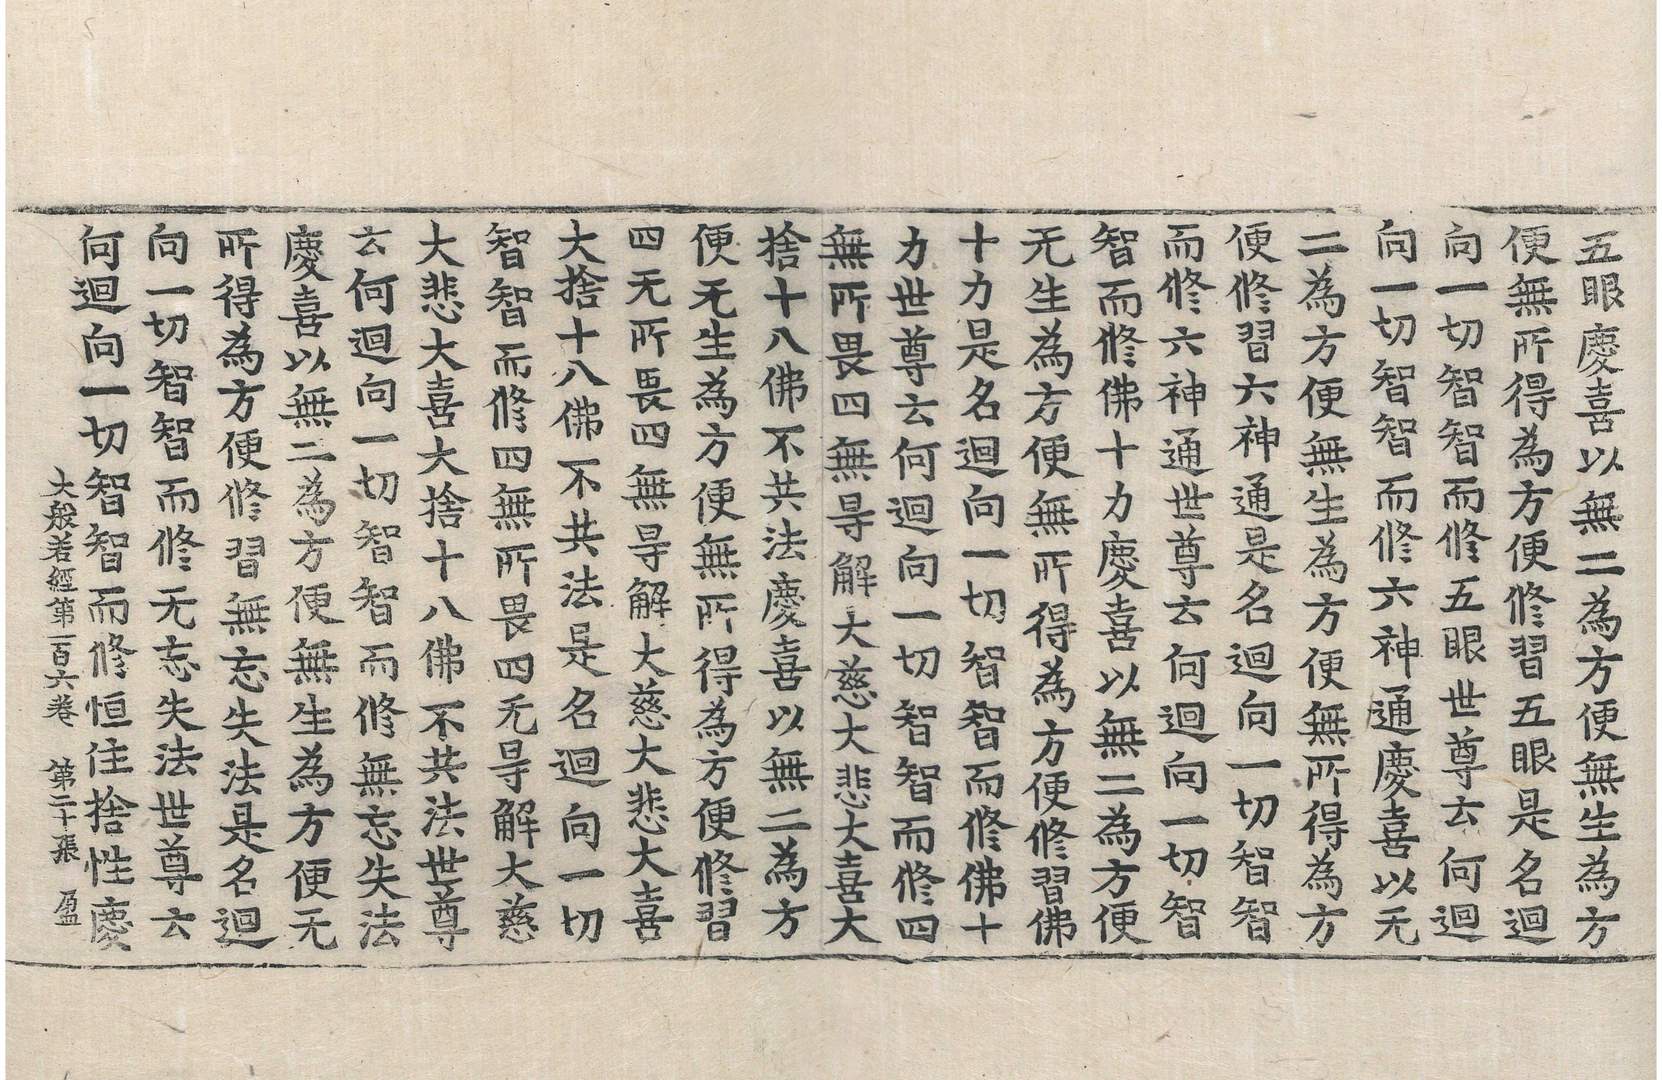 五眼慶喜以無二為方便無生為方
便無所得為方便修習五眼是名迴
向一切智智而修五眼世尊云何迴
向一切智智而修六神通慶喜以无
二為方便無生為方便無所得為方
便修習六神通是名迴向一切智智
而修六神通世尊云何迴向一切智
智而修佛十力慶喜以無二為方便
无生為方便無所得為方便修習佛
十力是名迴向一切智智而修佛十
力世尊云何迴向一切智智而修四
無所畏四無㝵解大慈大悲大喜大
捨十八佛不共法慶喜以無二為方
便无生為方便無所得為方便修習
四无所畏四無㝵解大慈大悲大喜
大捨十八佛不共法是名迴向一切
智智而修四無所畏四无㝵解大慈
大悲大喜大捨十八佛不共法世尊
云何迴向一切智智而修無忘失法
慶喜以無二為方便無生為方便无
所得為方便修習無忘失法是名迴
向一切智智而修无忘失法世尊云
何迴向一切智智而修恒住捨性慶
大般若經第一百六卷 第二十張 盈